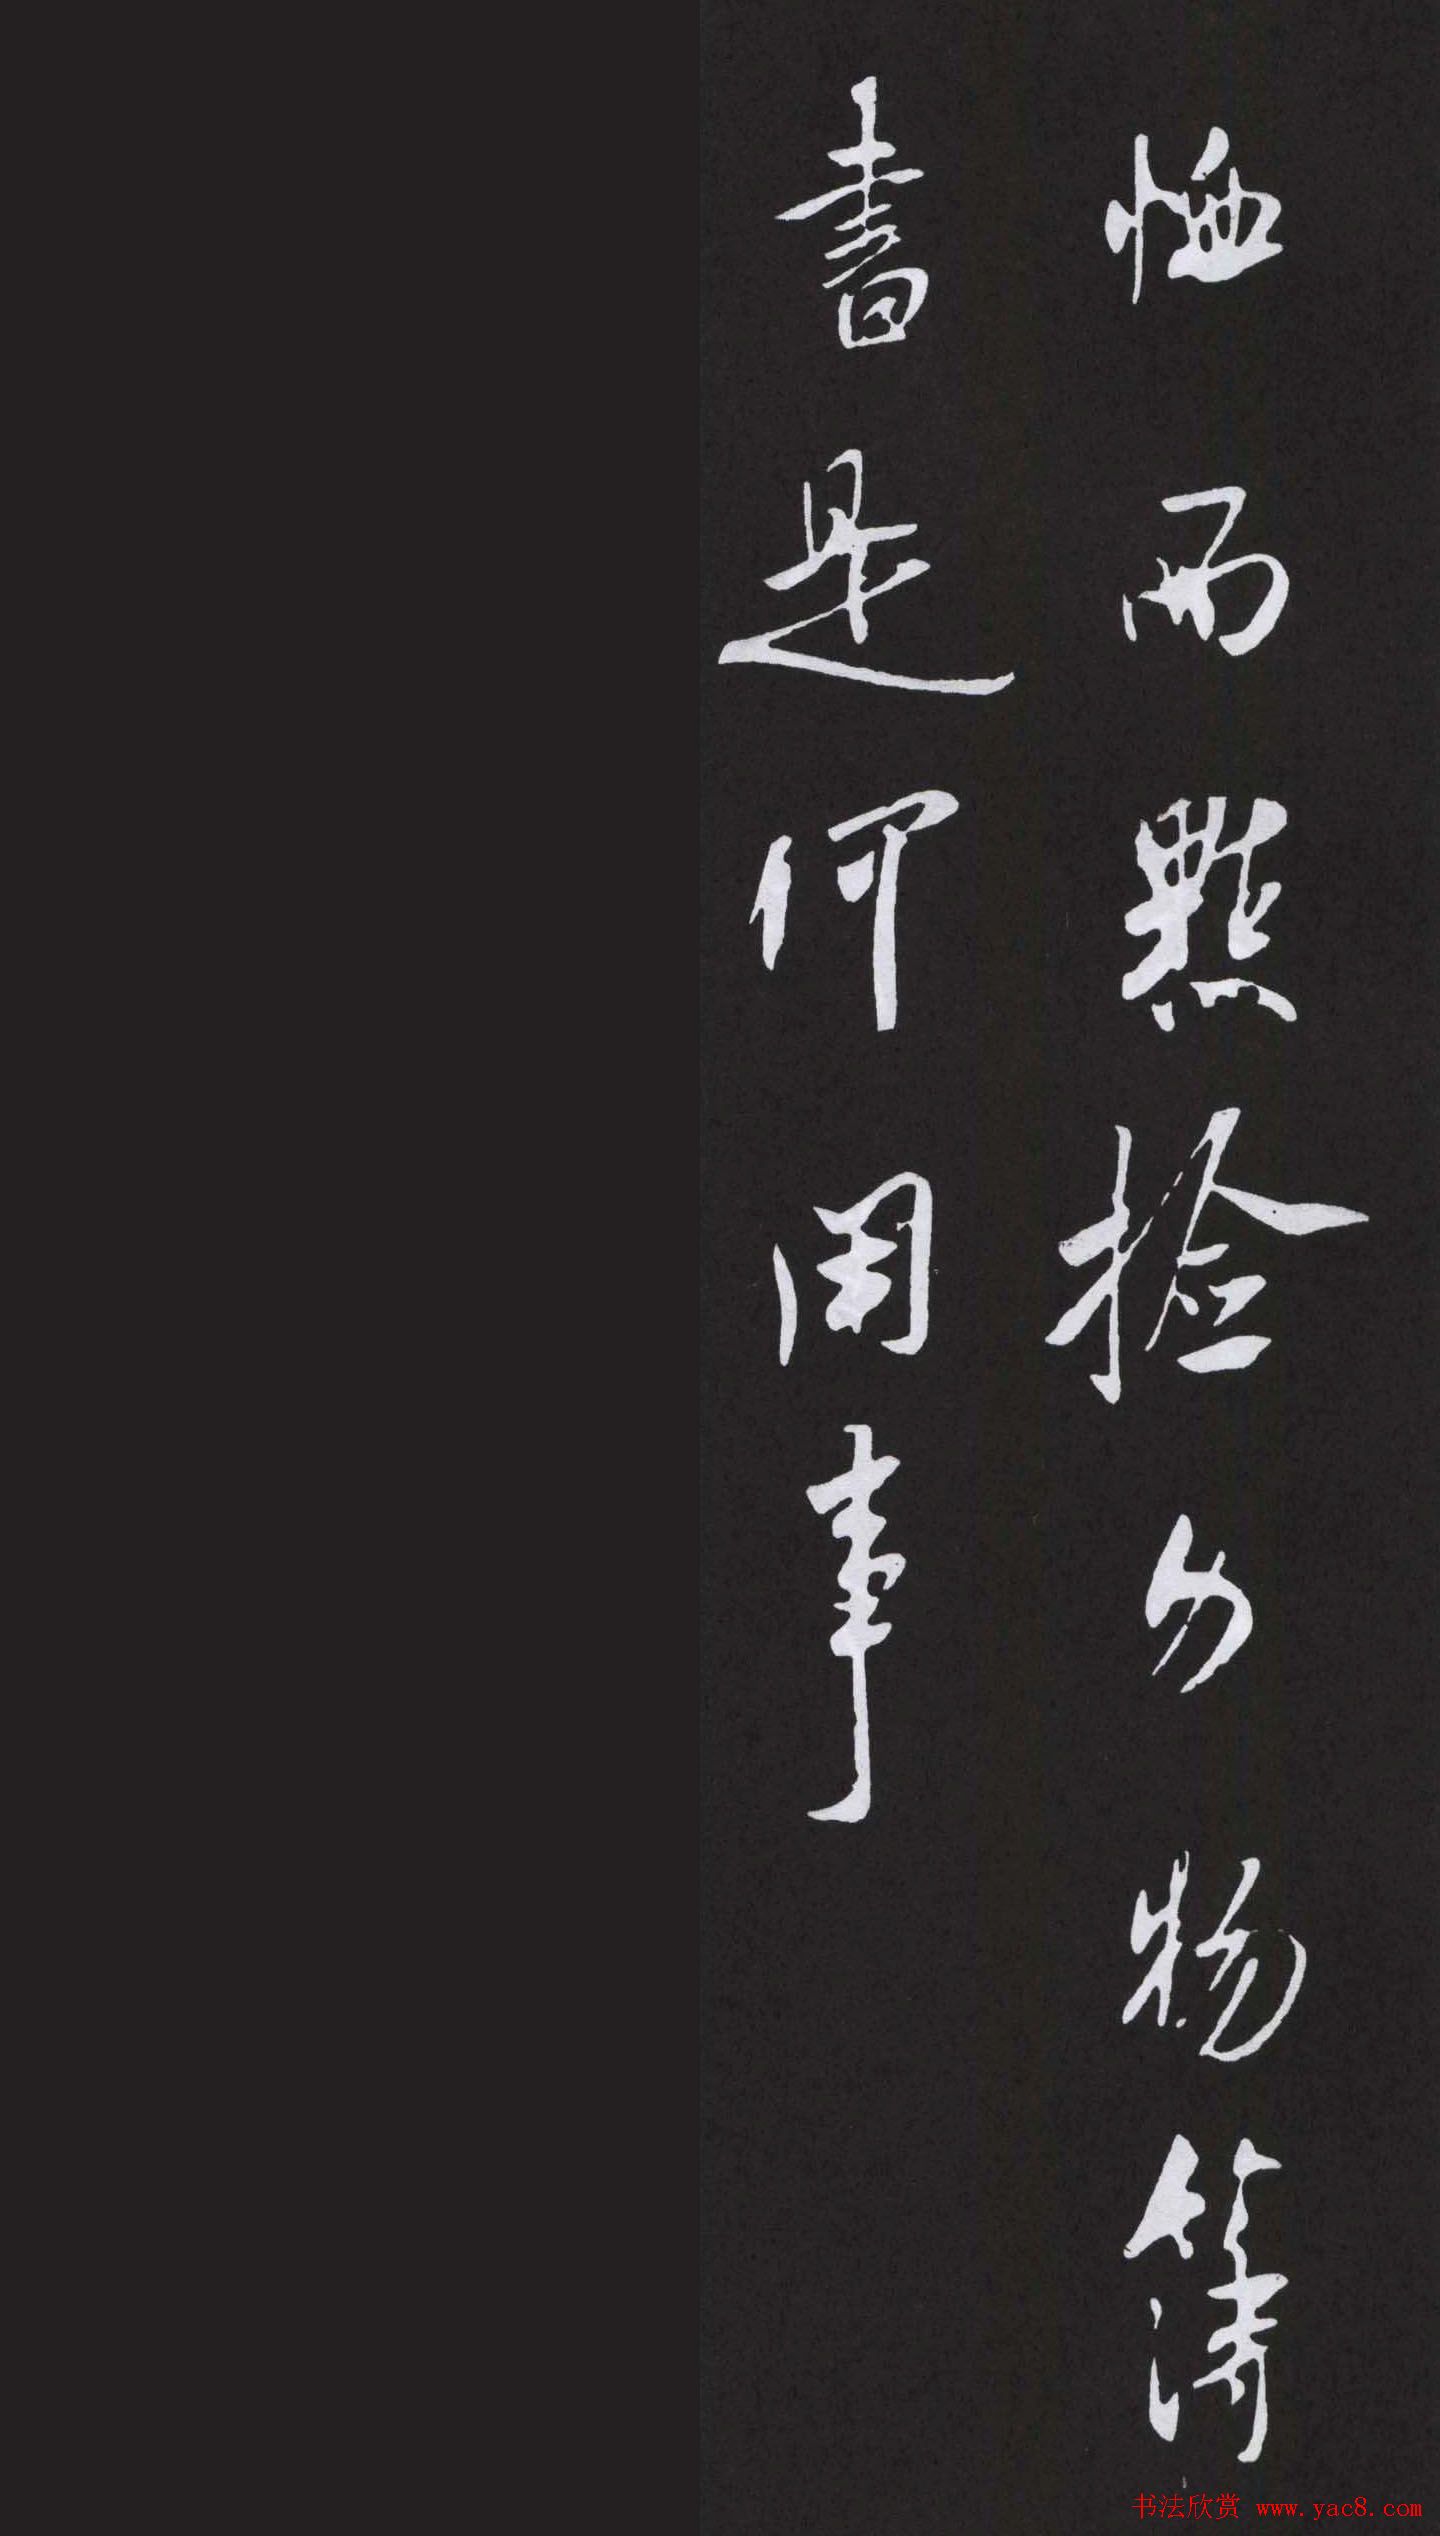 恤而點撿勿物簿
書是何困事
书法欣赏 www.yac8.com